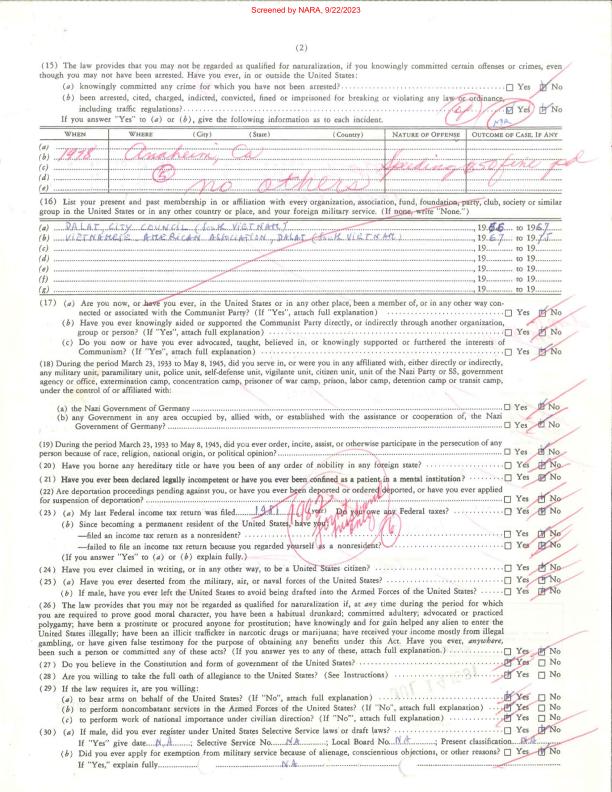 Screened by NARA, 9/22/2023
(2)
(15) The law provides that you may not be regarded as qualified for naturalization, if you knowingly committed certain offenses or crimes, even
though you may not have been arrested. Have you ever, in or outside the United States:
(a) knowingly committed any crime for which you have not been arrested? ☐ Yes ☑ No
(b) been arrested, cited, charged, indicted, convicted, fined or imprisoned for breaking or violating any law or ordinance,
including traffic regulations? ☑ Yes ☐ No
If you answer "Yes" to (a) or (b), give the following information as to each incident.
WHEN WHERE (City) (State) (Country) NATURE OF OFFENSE OUTCOME OF CASE, IF ANY
(a)
(b) 1978 Anaheim, Ca Speeding $50 fine pd
(c) (5)
(d) no others
(e)
(16) List your present and past membership in or affiliation with every organization, association, fund, foundation, party, club, society or similar
group in the United States or in any other country or place, and your foreign military service. (If none, write "None.")
(a) DALAT CITY COUNCIL (South VIETNAM), 1966 to 1967
(b) VIETNAMESE AMERICAN ASSOCIATION, DALAT (South VIETNAM), 1967 to 1975
(c) , 19 to 19
(d) , 19 to 19
(e) , 19 to 19
(f) , 19 to 19
(g) , 19 to 19
(17) (a) Are you now, or have you ever, in the United States or in any other place, been a member of, or in any other way con-
nected or associated with the Communist Party? (If "Yes", attach full explanation) ☐ Yes ☑ No
(b) Have you ever knowingly aided or supported the Communist Party directly, or indirectly through another organization,
group or person? (If "Yes", attach full explanation) ☐ Yes ☑ No
(c) Do you now or have you ever advocated, taught, believed in, or knowingly supported or furthered the interests of
Communism? (If "Yes", attach full explanation) ☐ Yes ☑ No
(18) During the period March 23, 1933 to May 8, 1945, did you serve in, or were you in any affiliated with, either directly or indirectly,
any military unit, paramilitary unit, police unit, self-defense unit, vigilante unit, citizen unit, unit of the Nazi Party or SS, government
agency or office, extermination camp, concentration camp, prisoner of war camp, prison, labor camp, detention camp or transit camp,
under the control of or affiliated with:
(a) the Nazi Government of Germany ☐ Yes ☑ No
(b) any Government in any area occupied by, allied with, or established with the assistance or cooperation of, the Nazi
Government of Germany? ☐ Yes ☑ No
(19) During the period March 23, 1933 to May 8, 1945, did you ever order, incite, assist, or otherwise participate in the persecution of any
person because of race, religion, national origin, or political opinion? ☐ Yes ☑ No
(20) Have you borne any hereditary title or have you been of any order of nobility in any foreign state? ☐ Yes ☑ No
(21) Have you ever been declared legally incompetent or have you ever been confined as a patient in a mental institution? ☐ Yes ☑ No
(22) Are deportation proceedings pending against you, or have you ever been deported or ordered deported, or have you ever applied
for suspension of deportation? ☐ Yes ☑ No
(23) (a) My last Federal income tax return was filed 1981 (year) Do you owe any Federal taxes? ☐ Yes ☑ No
1982
(b) Since becoming a permanent resident of the United States, have you:
—filed an income tax return as a nonresident? ☐ Yes ☑ No
(6)
—failed to file an income tax return because you regarded yourself as a nonresident? ☐ Yes ☑ No
(If you answer "Yes" to (a) or (b) explain fully.)
(24) Have you ever claimed in writing, or in any other way, to be a United States citizen? ☐ Yes ☑ No
(25) (a) Have you ever deserted from the military, air, or naval forces of the United States? ☐ Yes ☑ No
(b) If male, have you ever left the United States to avoid being drafted into the Armed Forces of the United States? ☐ Yes ☑ No
(26) The law provides that you may not be regarded as qualified for naturalization if, at any time during the period for which
you are required to prove good moral character, you have been a habitual drunkard; committed adultery; advocated or practiced
polygamy; have been a prostitute or procured anyone for prostitution; have knowingly and for gain helped any alien to enter the
United States illegally; have been an illicit trafficker in narcotic drugs or marijuana; have received your income mostly from illegal
gambling, or have given false testimony for the purpose of obtaining any benefits under this Act. Have you ever, anywhere,
been such a person or committed any of these acts? (If you answer yes to any of these, attach full explanation.) ☐ Yes ☑ No
(27) Do you believe in the Constitution and form of government of the United States? ☑ Yes ☐ No
(28) Are you willing to take the full oath of allegiance to the United States? (See Instructions) ☑ Yes ☐ No
(29) If the law requires it, are you willing:
(a) to bear arms on behalf of the United States? (If "No", attach full explanation) ☑ Yes ☐ No
(b) to perform noncombatant services in the Armed Forces of the United States? (If "No", attach full explanation) ☑ Yes ☐ No
(c) to perform work of national importance under civilian direction? (If "No", attach full explanation) ☑ Yes ☐ No
(30) (a) If male, did you ever register under United States Selective Service laws or draft laws? ☐ Yes ☑ No
If "Yes" give date N.A; Selective Service No. NA; Local Board No. NA; Present classification NA
(b) Did you ever apply for exemption from military service because of alienage, conscientious objections, or other reasons? ☐ Yes ☑ No
If "Yes," explain fully NA